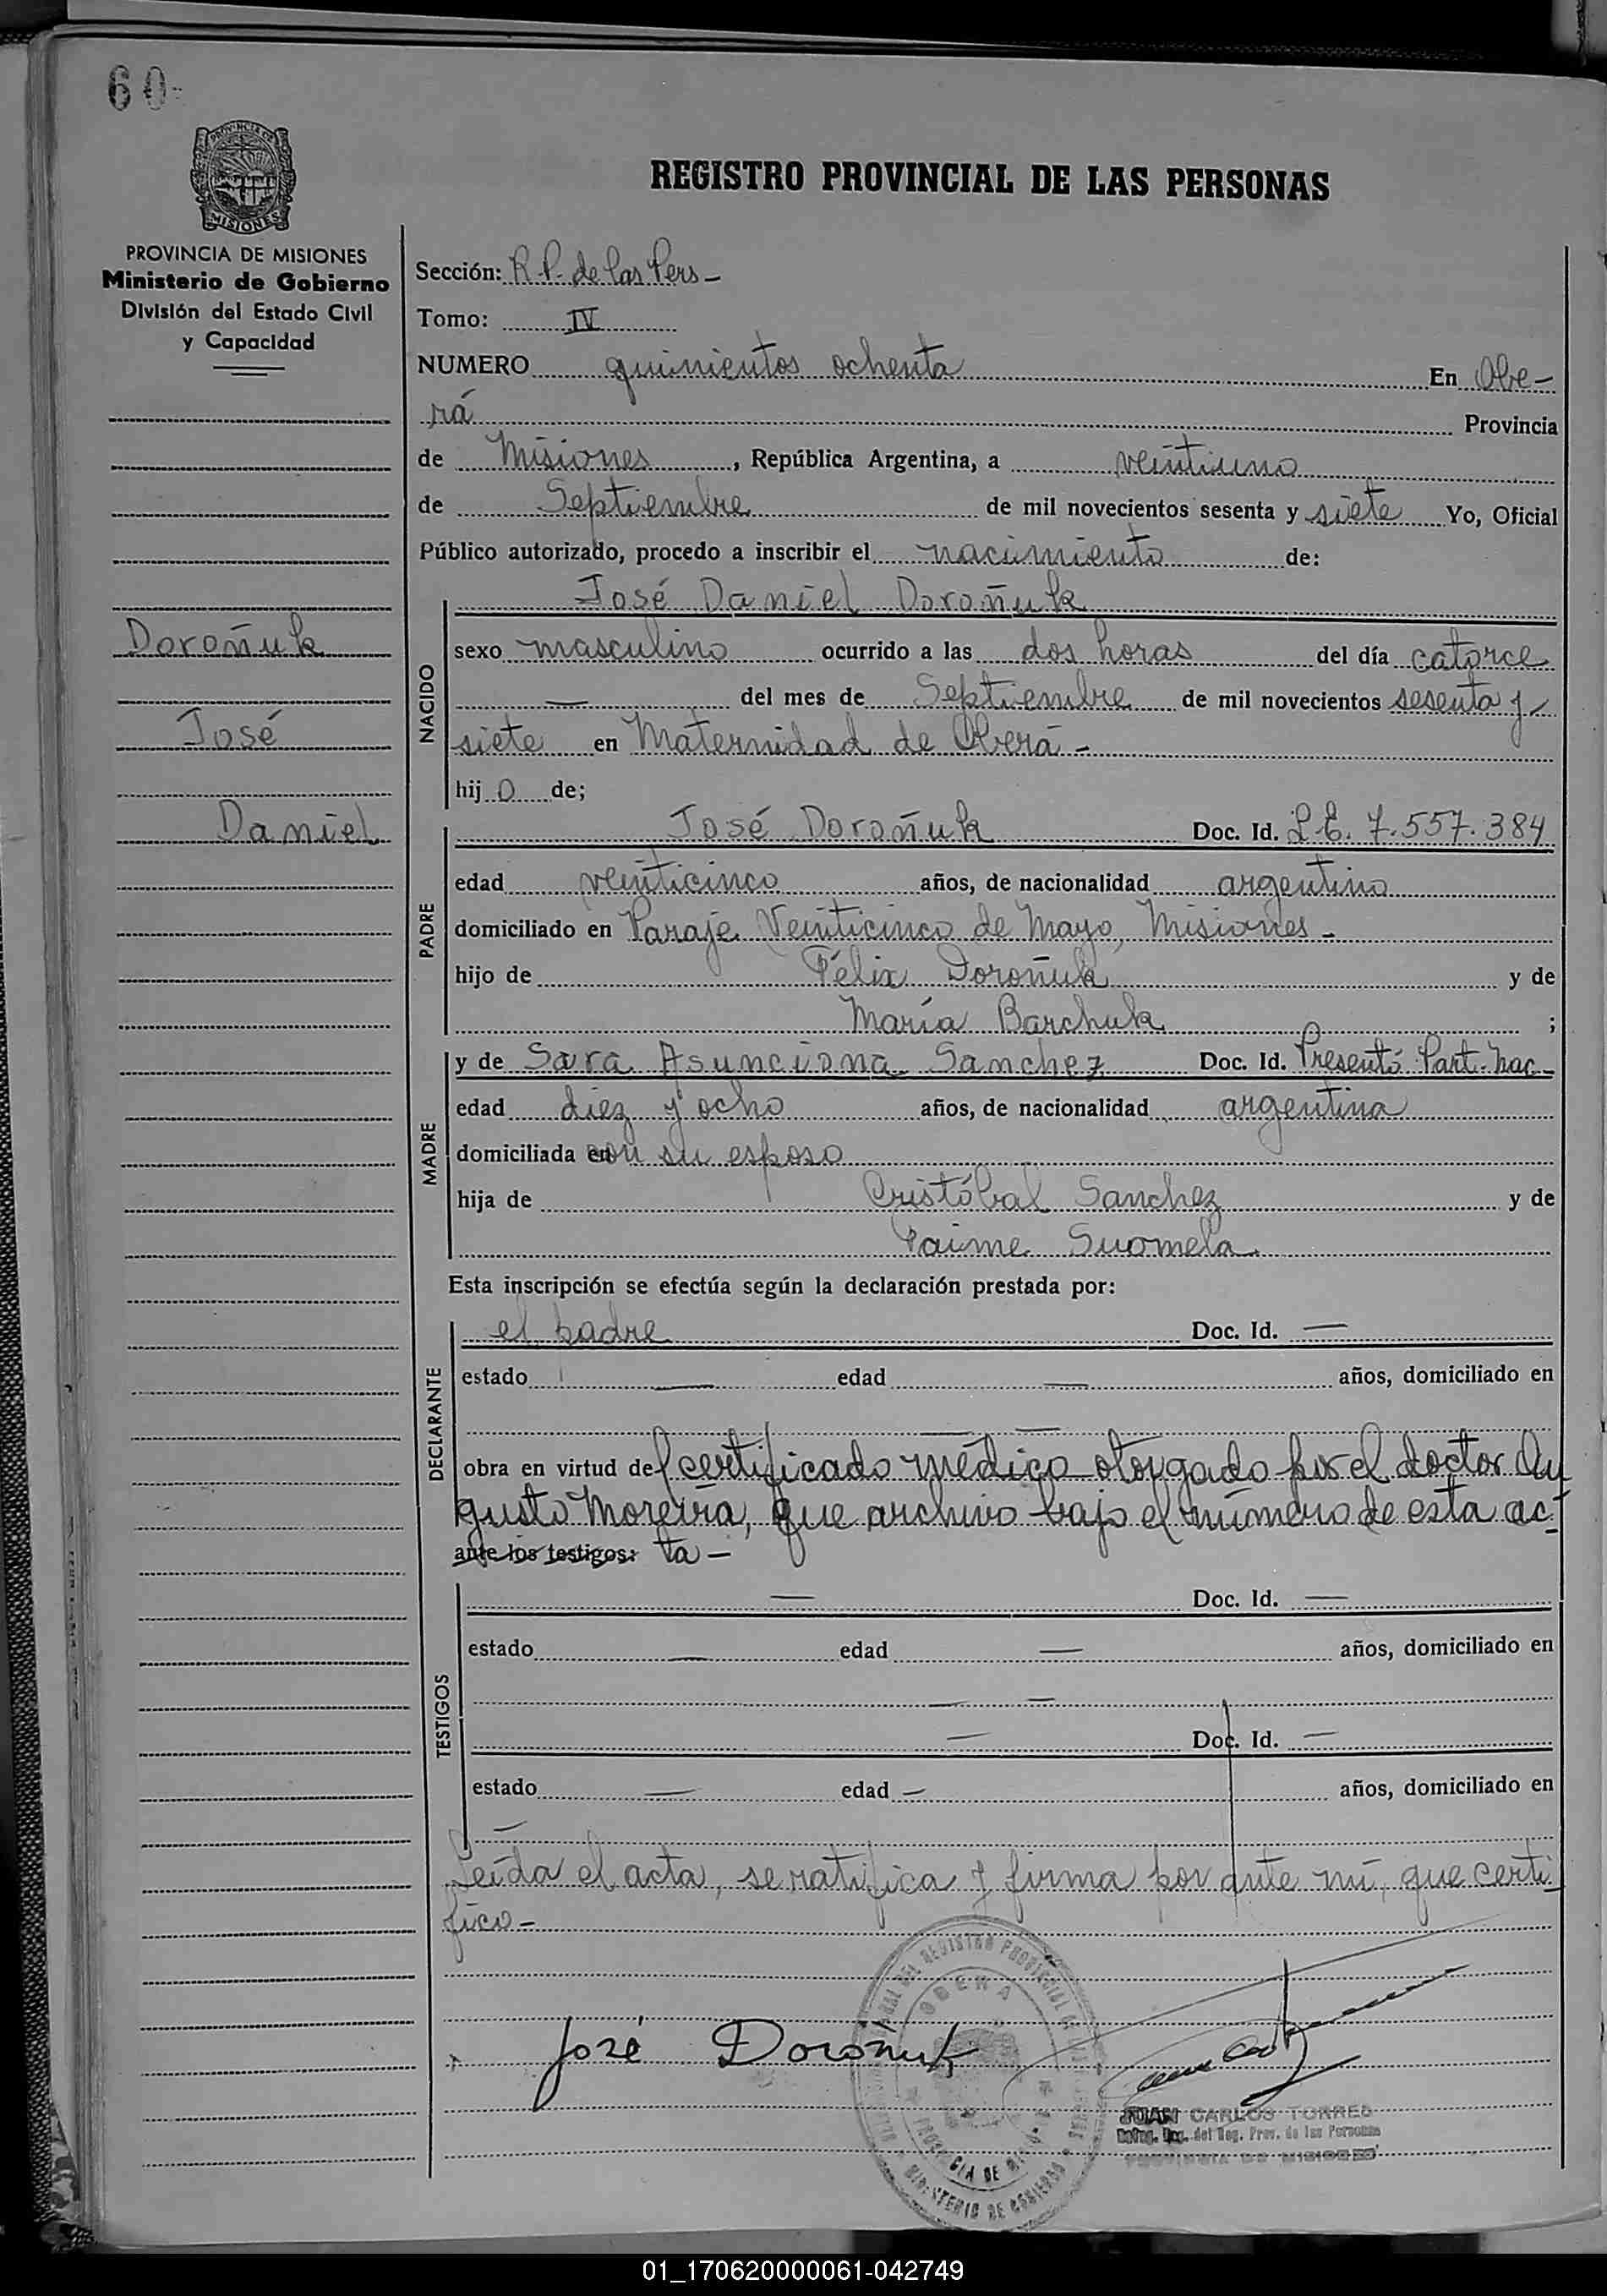 60
PROVINCIA DE
MISIONES
PROVINCIA DE MISIONES
Ministerio de Gobierno
División del Estado Civil
y Capacidad
Doroñuk
José
Daniel
REGISTRO PROVINCIAL DE LAS PERSONAS
Sección: R.P. de las Pers -
Tomo: IV
NUMERO quinientos ochenta En Obe-
rá Provincia
de Misiones, República Argentina, a veintiuno
de Septiembre de mil novecientos sesenta y siete Yo, Oficial
Público autorizado, procedo a inscribir el nacimiento de:
José Daniel Doroñuk
NACIDO
sexo masculino ocurrido a las dos horas del día catorce
— del mes de Septiembre de mil novecientos sesenta y
siete en Maternidad de Oberá -
hijo de;
PADRE
José Doroñuk Doc. Id. L.E. 7.557.384
edad veinticinco años, de nacionalidad argentino
domiciliado en Paraje Veinticinco de Mayo, Misiones -
hijo de Félix Doroñuk y de
María Barchuk ;
MADRE
y de Sara Asunciona Sanchez Doc. Id. Presentó Part. Nac-
edad diez y ocho años, de nacionalidad argentina
domiciliada en con su esposo
hija de Cristóbal Sanchez y de
Paime Suomela
Esta inscripción se efectúa según la declaración prestada por:
DECLARANTE
el padre Doc. Id. —
estado — edad — años, domiciliado en
— —
obra en virtud del certificado médico otorgado por el doctor Au
gusto Moreira, que archivo bajo el número de esta ac-
ante los testigos: ta -
TESTIGOS
— Doc. Id. —
estado — edad — años, domiciliado en
— —
— Doc. Id. —
estado — edad — años, domiciliado en
—
Leída el acta, se ratifica y firma por ante mí, que certi-
fico -
José Doroñuk
OBERA
PROVINCIA DE MISIONES
MINISTERIO DE GOBIERNO
JUAN CARLOS TORRES
del Reg. Prov. de las Personas
PROVINCIA DE MISIONES
01_170620000061-042749